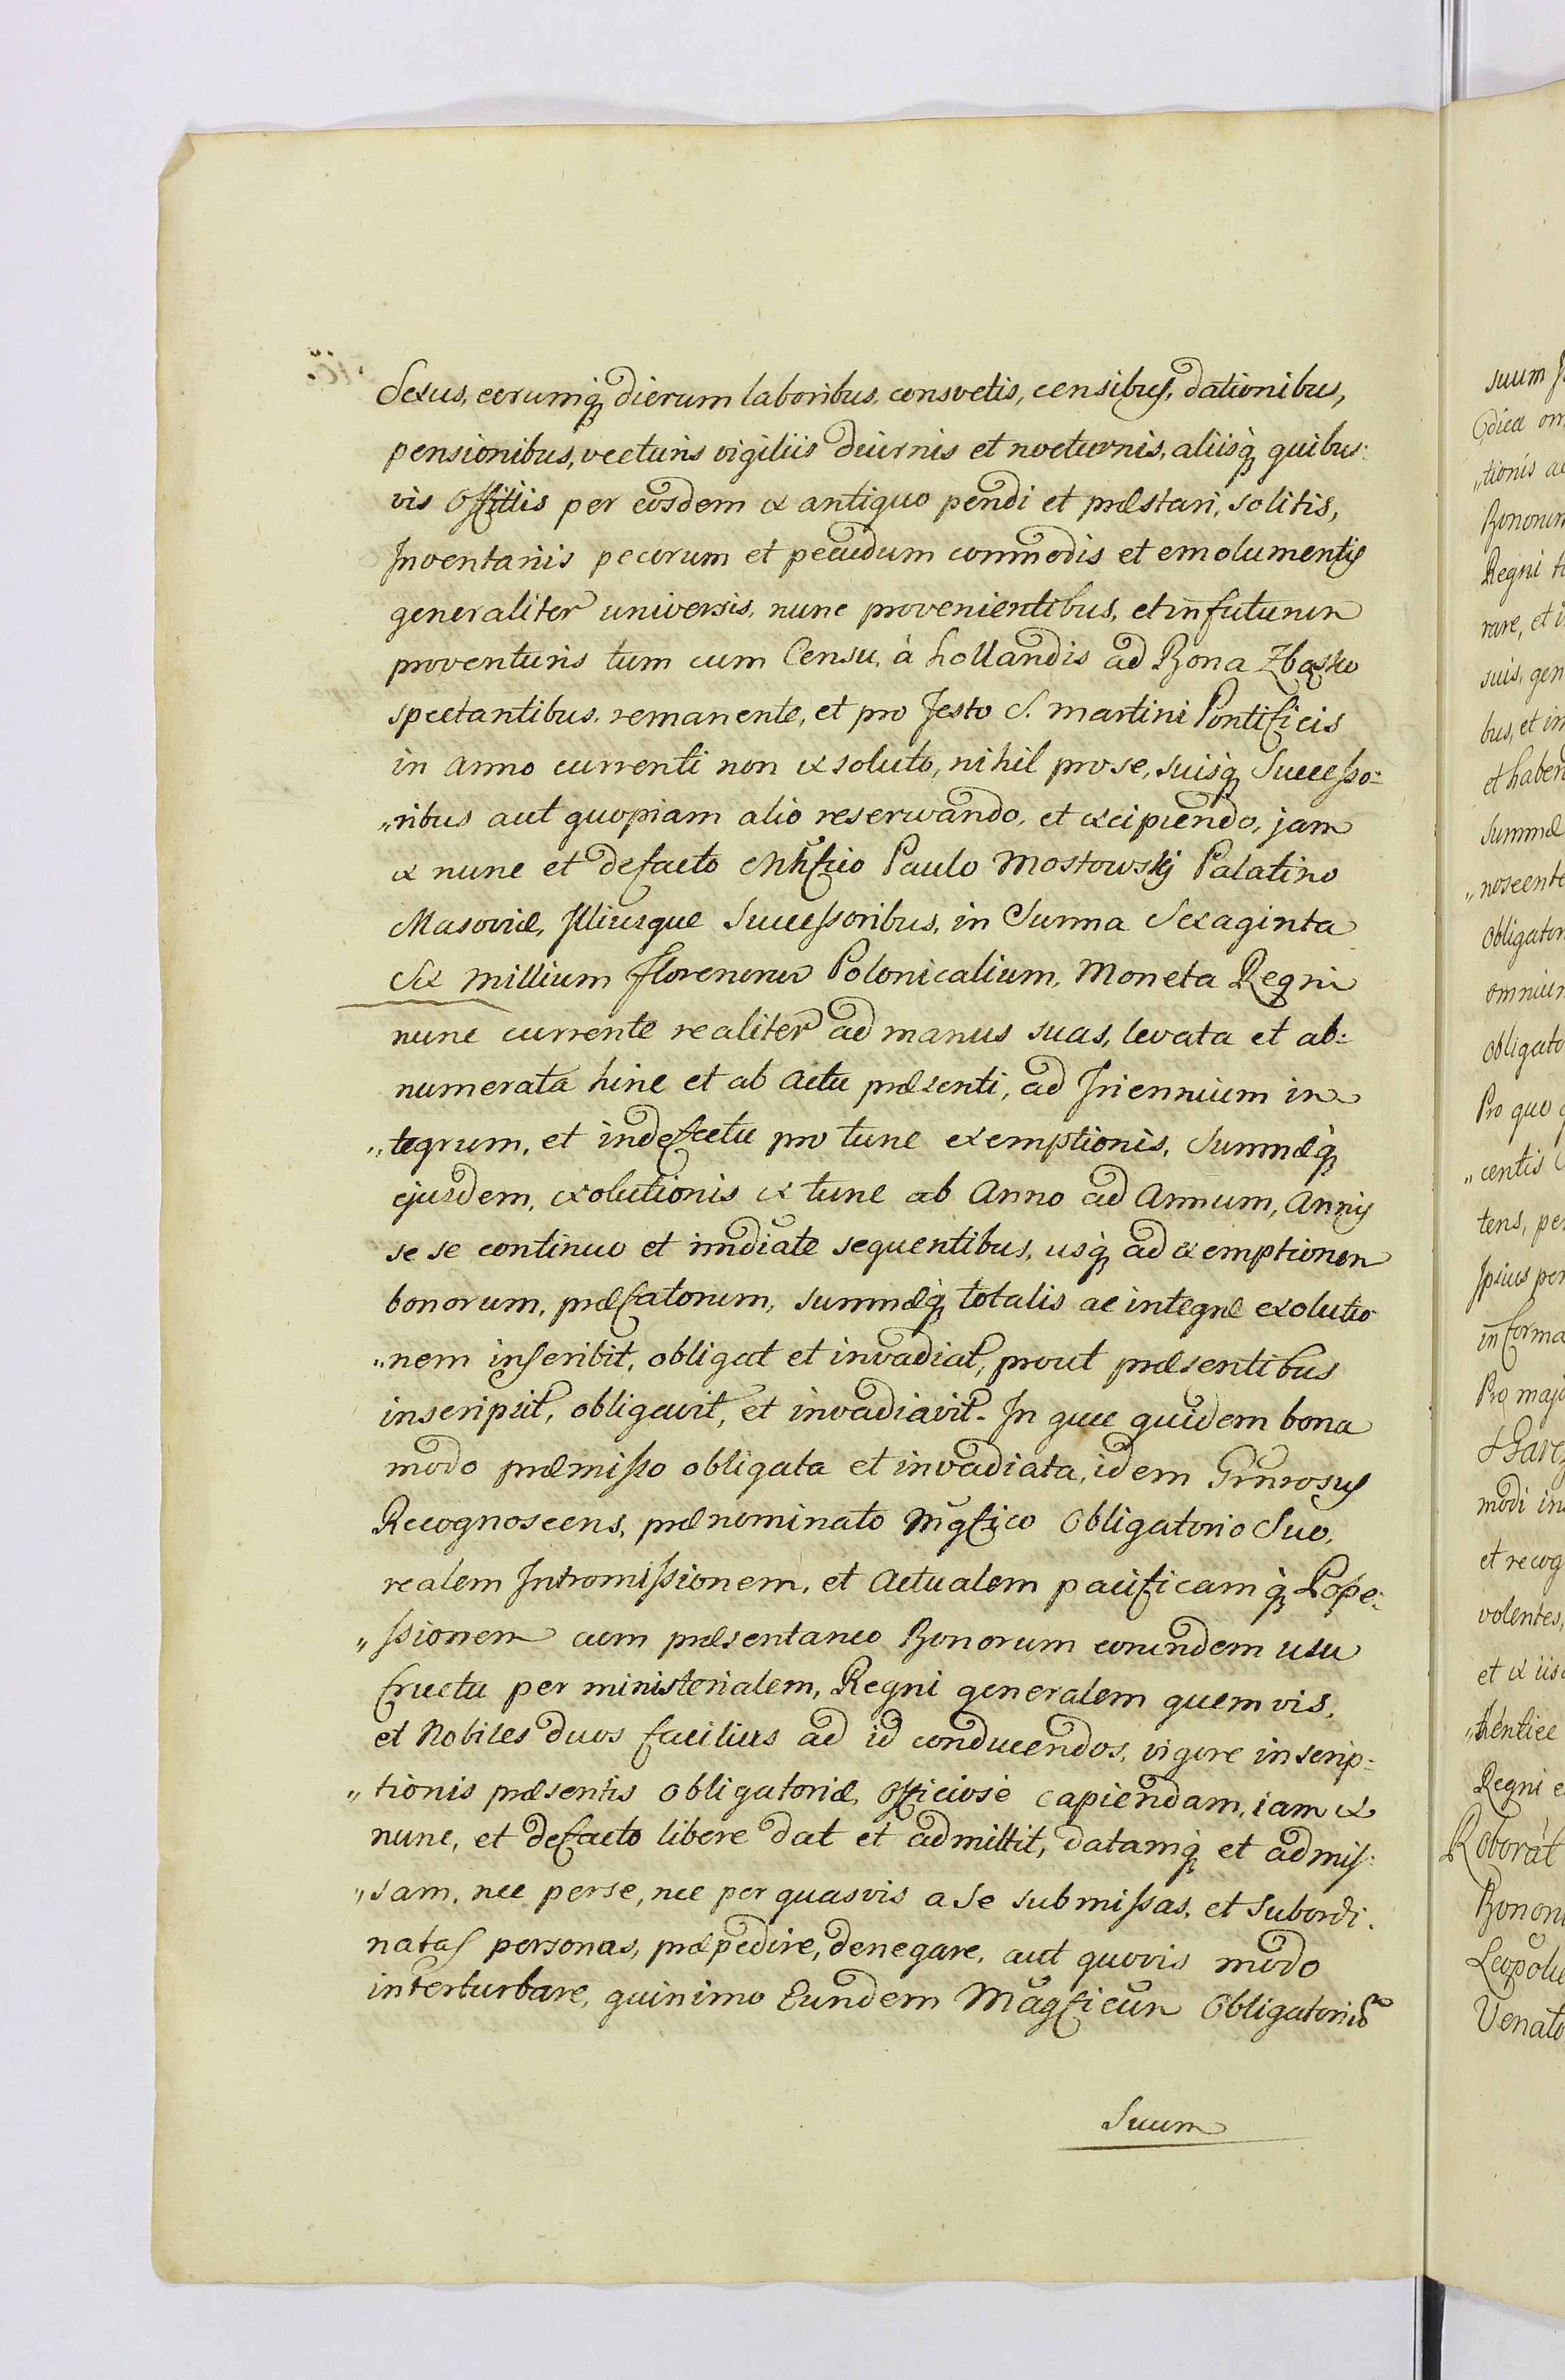 Sexus, eorumq́ dierum laboribus consvetis, censibus, dationibus,
pensionibus, vecturis vigiliis diurnis et nocturnis, aliisq́ quibus:
vis Offitiis per eosdem ex antiquo pendi et præstari, solitis,
Inventariis pecorum et pecudum commodis et emolumentis
generaliter universis, nunc provenientibus, et in futurum
proventuris tum cum Censu, à hollandis ad Bona Zbąsko
spectantibus, remanente, et pro festo S. Martini Pontificis
in anno currenti non exsoluto, nihil pro se, suisq́ Successo:
„ribus aut quopiam alio reserwando, et excipiendo, jam
ex nunc et defacto Mhfico Paulo Mostowskj Palatino
Masoviæ, Illiusque Successoribus, in Summa Sexaginta
Sex millium florenorum Polonicalium, Moneta Regni
nunc currente realiter ad manus suas, levata et ab:
numerata hinc et ab actu præsenti, ad Triennium in
„tegrum, et in defectu pro tunc exemptionis, Summæq́
ejusdem, exolutionis ex tunc ab Anno ad Annum, Annis
se se continuo et imdiate sequentibus, usq́ ad exemptionem
bonorum, præfatorum, summæq́ totalis ac integræ exolutio
„nem inscribit, obligat et invadiat, prout præsentibus
inscripsit, obligavit, et invadiavit. In quæ quidem bona
modo præmisso obligata et invadiata, idem Grnrosus
Recognoscens, prænominato Mgfico Obligatorio Suo,
realem Intromissionem, et Actualem pacificamq́ Posse:
„ssionem cum præsentaneo Bonorum eorundem usu
fructu per ministerialem, Regni generalem quemvis,
et Nobiles duos facilius ad id conducendos, vigore inscrip:
„tionis præsentis obligatoriæ, officiose capiendam, iam ex
nunc, et defacto libere dat et admittit, datamq́ et admis:
„sam, nec per se, nec per quasvis a se submissas, et subordi:
natas personas, præpedire, denegare, aut quovis modo
interturbare, quinimo Eundem Magficum Obligatorium
Suum
suum
tionis
Bonorum
Regni
rare, et
suis, gen
bus, et in
et haben
summæ
„noscente
obligator
omnium
obligato
Pro quo
„centis
tens, per
Ipsius per
in forma
Pro majo
modi in
et recog
volentes,
et ex iis
Regni e
Roborat
Bonon
Leopold
Venato